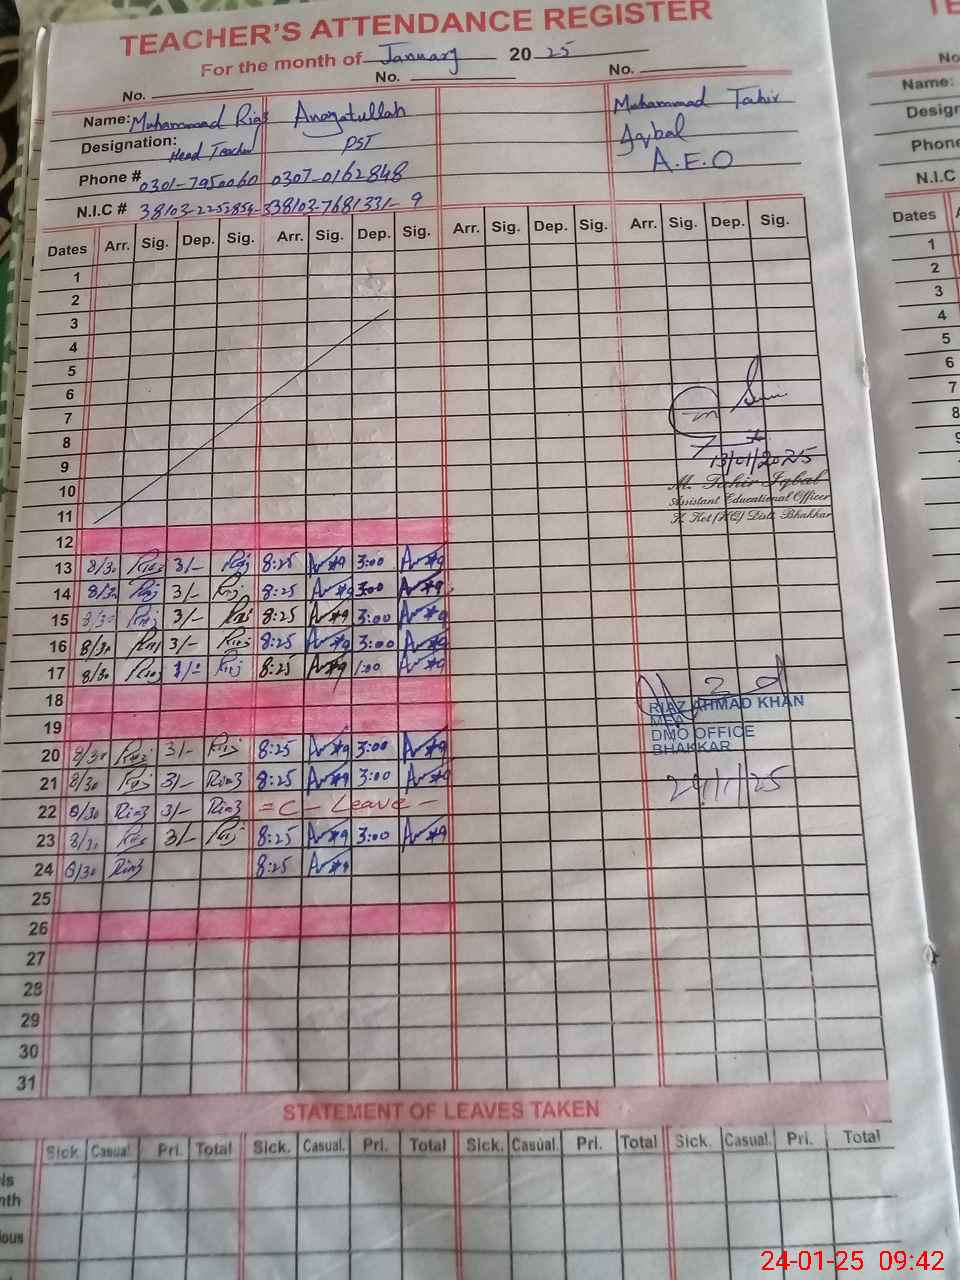 TEACHER'S ATTENDANCE REGISTER
For the month of January 20 25
No. No. No.
Name: Muhammad Riaz Anayatullah Muhammad Tahir
Iqbal
Designation: Head Teacher PST A.E.O
Phone # 0301-7950060 0307-0162848
N.I.C # 38103-2252854-3 38103-7681331-9
Dates Arr. Sig. Dep. Sig. Arr. Sig. Dep. Sig. Arr. Sig. Dep. Sig. Arr. Sig. Dep. Sig.
1
2
3
4
5
6
7
8
9
13/01/2025
10
M. Tahir Iqbal
Assistant Educational Officer
11
K. Kot (HQ) Distt. Bhakkar
12
13 8/30 Riaz 3/- Riaz 8:25 3:00
14 8/30 Riaz 3/- Riaz 8:25 3:00
15 8/30 Riaz 3/- Riaz 8:25 3:00
16 8/30 Riaz 3/- Riaz 8:25 3:00
17 8/30 Riaz 1/- Riaz 8:25 1:00
18
RIAZ AHMAD KHAN
MEA
19
DMO OFFICE
BHAKKAR
20 8/30 Riaz 3/- Riaz 8:25 3:00
21 8/30 Riaz 3/- Riaz 8:25 3:00
24/1/25
22 8/30 Riaz 3/- Riaz = C - Leave -
23 8/30 Riaz 3/- Riaz 8:25 3:00
24 8/30 Riaz 8:25
25
26
27
28
29
30
31
STATEMENT OF LEAVES TAKEN
Sick. Casual. Pri. Total Sick. Casual. Pri. Total Sick. Casual. Pri. Total Sick. Casual. Pri. Total
24-01-25 09:42